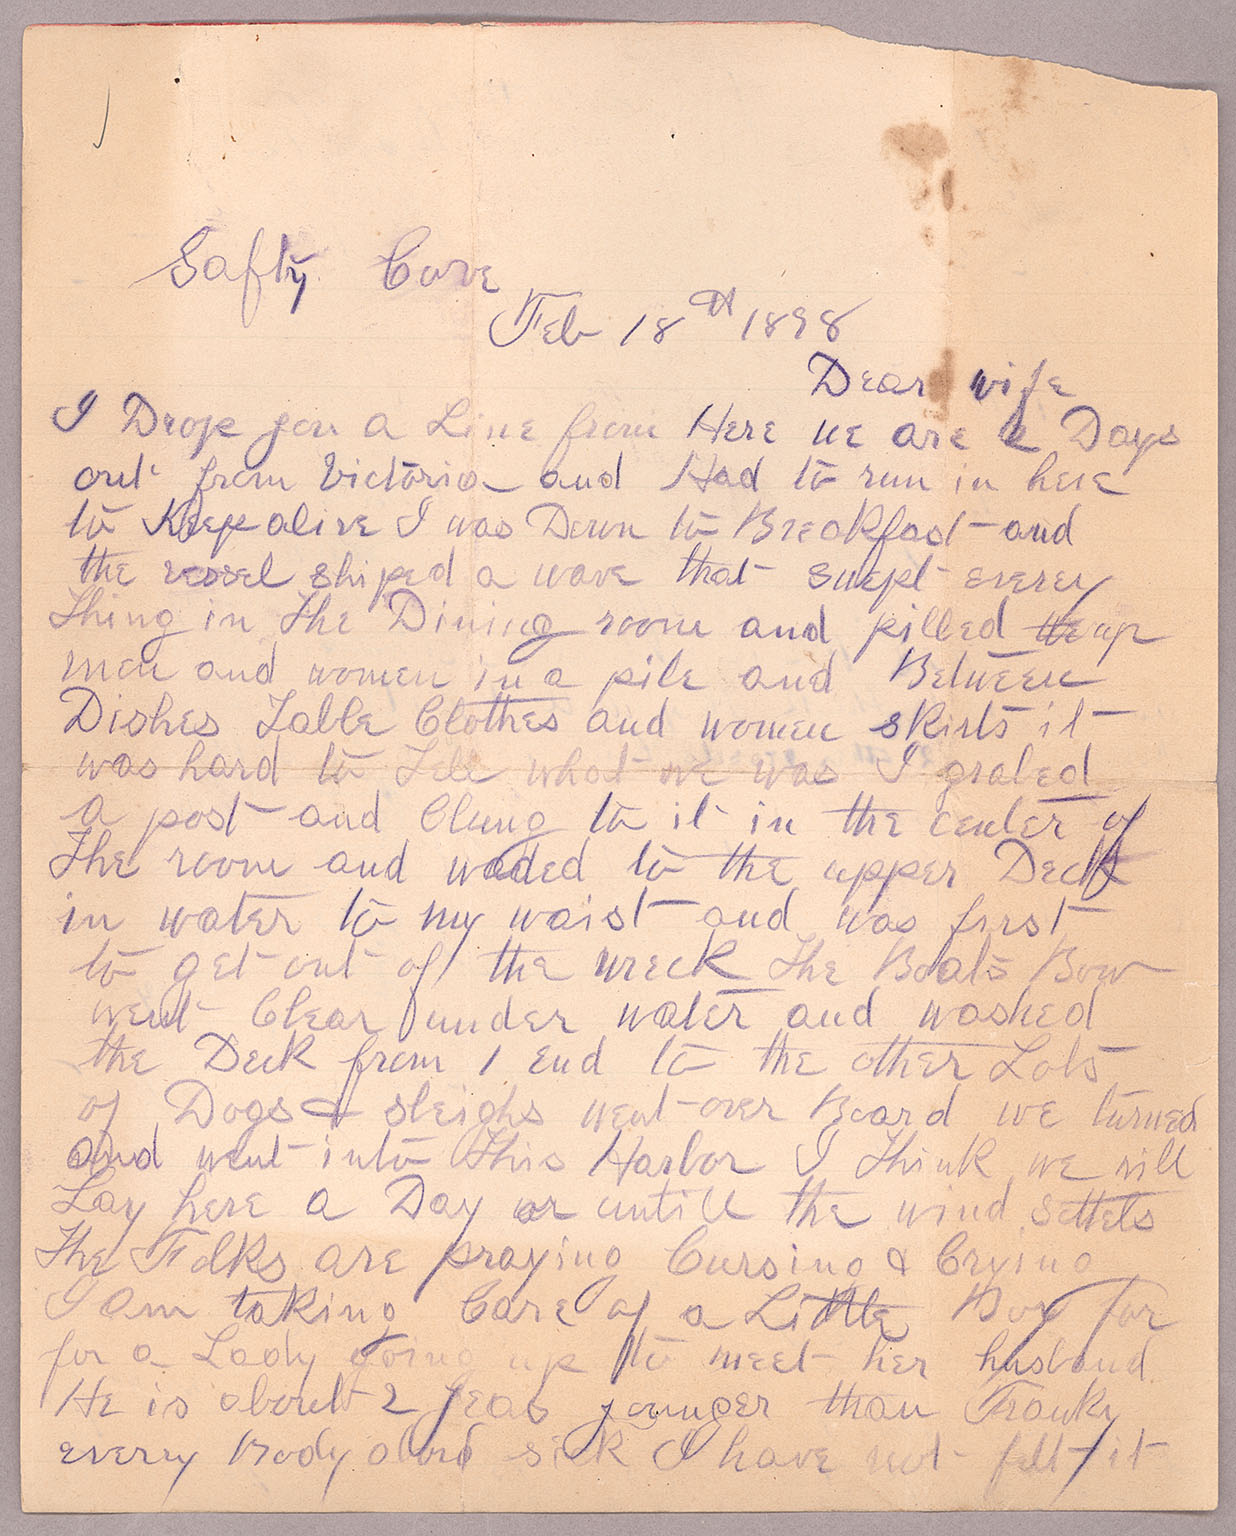 Safty Cove
Feb 18th 1898
Dear wife
I Drop you a Line from Here we are 2 Days
out from Victoria and Had to run in here
to Keep alive I was Down to Breakfast and
the vessel shiped a wave that swept everey
Thing in the Dining room and pilled the up
men and women in a pile and Between
Dishes Table Clothes and women skirts it
was hard to Tele what we was I grabed
a post and Clung to it in the center of
The room and waded to the upper Deck
in water to my waist and was first
to get out of the wreck The Boats Bow
went Clear under water and washed
the Deck from 1 End to the other Lots
of Dogs & sleighs went over Board we turned
and went into This Harbor I Think we will
Lay here a Day or untill the wind settels
The Folks are praying Cursing & Crying
I am taking Care of a Little Boy for
for a Lady going up to meet her husband
He is about 2 years younger than Franky
everry Body abord sick I have not felt it